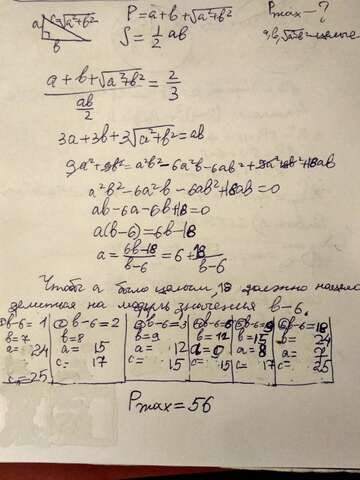 a c=√a²+b² b
P = a+b+√a²+b²
S = 1/2 ab
Pmax - ?
a, b, √a²+b² - целые
(a+b+√a²+b²)/(ab/2) = 2/3
3a+3b+3√a²+b² = ab
a²b²-6a²b-6ab²+18ab=0
ab-6a-6b+18=0
a(b-6)=6b-18
a = (6b-18)/(b-6) = 6 + 18/(b-6)
Чтобы a было целым, 18 должно нацело
делиться на модуль значения b-6.
b-6=1 b-6=2 b-6=3 b-6=6 b-6=9 b-6=18
b=7 b=8 b=9 b=12 b=15 b=24
a=24 a=15 a=12 a=9 a=8 a=7
c=25 c=17 c=15 c=15 c=17 c=25
Pmax=56